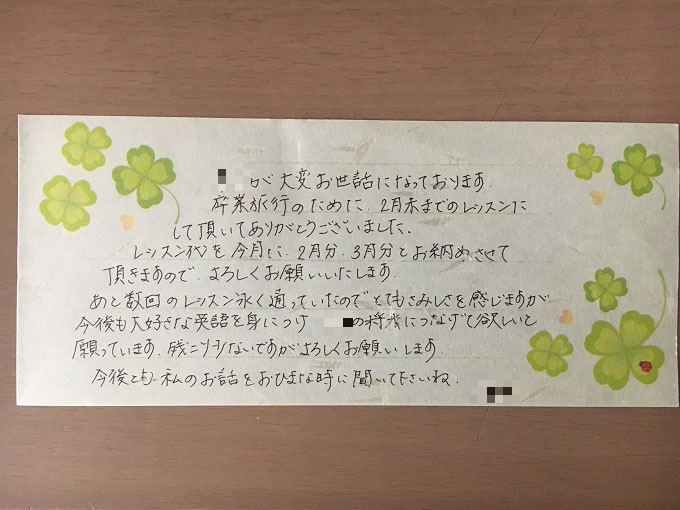 が大変お世話になっております.
卒業旅行のために、2月末までのレッスンに
して頂いてありがとうございました.
レッスン代を今月に、2月分、3月分とお納めさせて
頂きますので、よろしくお願いいたします.
あと数回のレッスン永く通っていたのでとてもさみしさを感じますが
今後も大好きな英語を身につけ の将来につなげて欲しいと
願っています.残り少ないですがよろしくお願いします
今後とも、私のお話をおひまな時に聞いて下さいね.